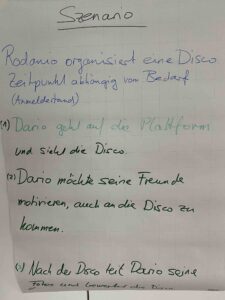 Szenario
Rodano organisiert eine Disco
Zeitpunkt abhängig vom Bedarf
(Anmeldestand)
(1) Dario geht auf die Plattform
und sieht die Disco.
(2) Dario möchte seine Freunde
motivieren, auch an die Disco zu
kommen.
Nach der Disco teilt Dario seine
Fotos und